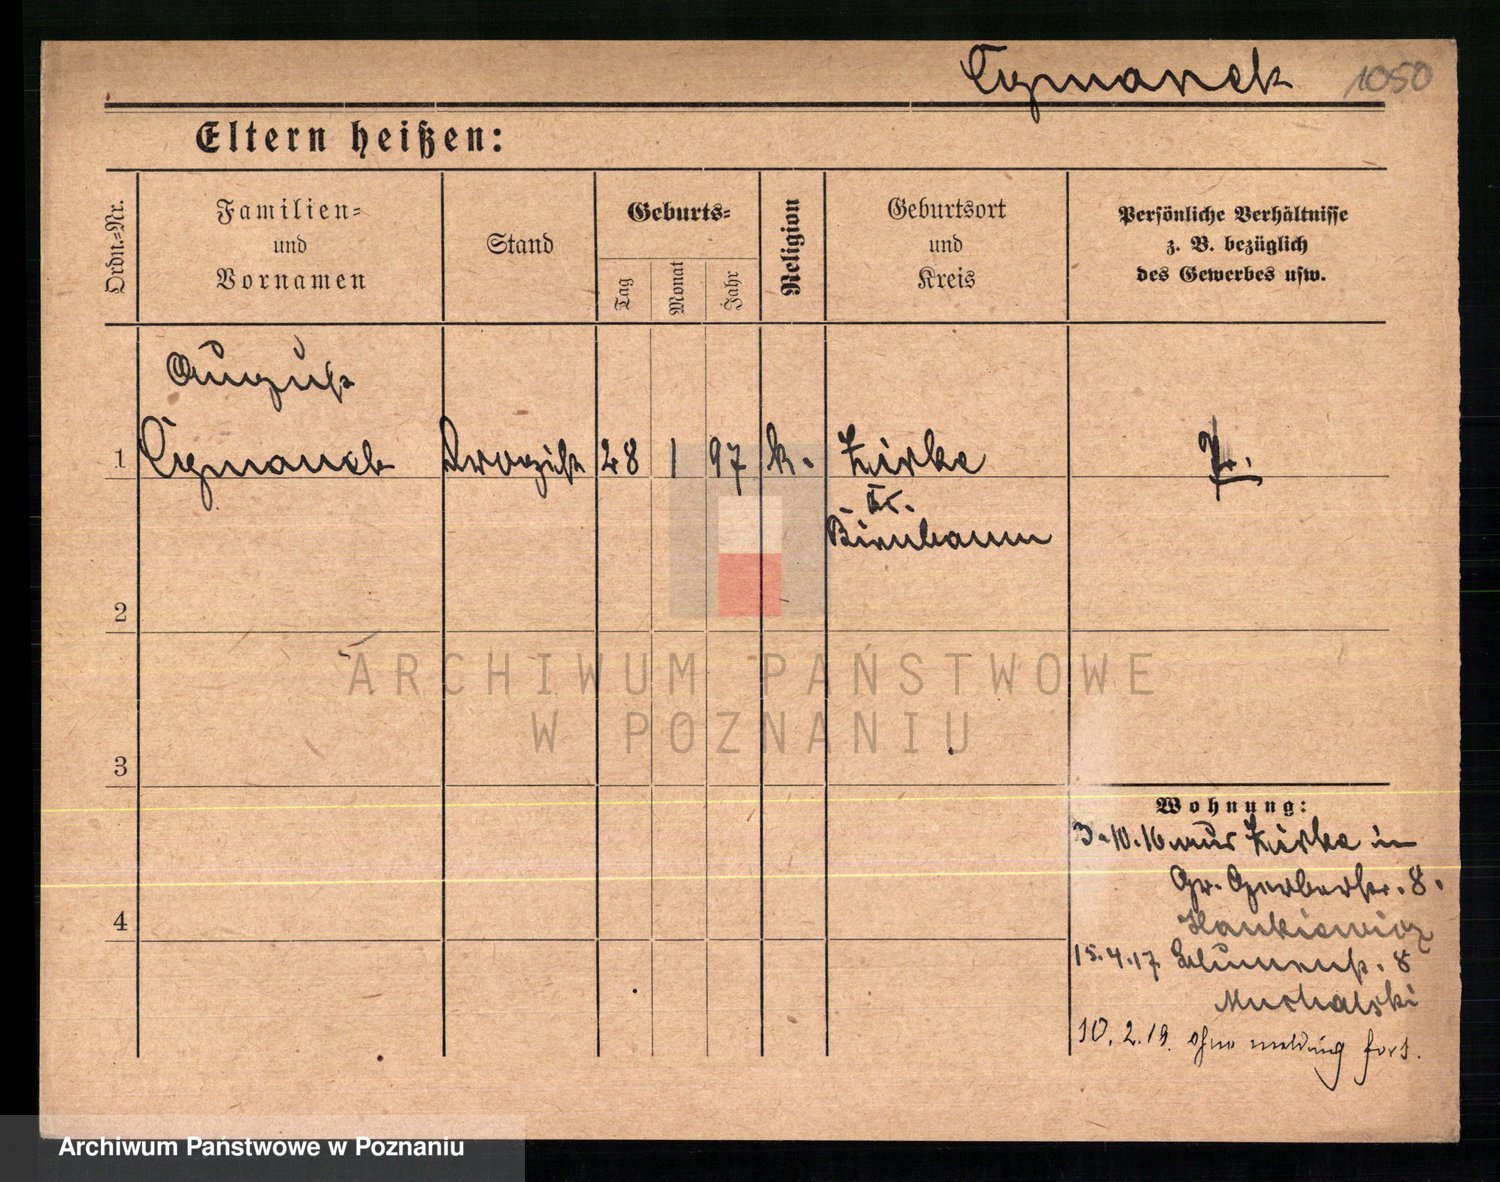 Cymanek 1050
Eltern heißen:
Ordn.-Nr.
Familien-
und
Vornamen
Stand
Geburts-
Tag
Monat
Jahr
Religion
Geburtsort
und
Kreis
Persönliche Verhältnisse
z. B. bezüglich
des Gewerbes usw.
August
1 Cymanek Drogist 28 1 97 k. Zirke
Kr.
Birnbaum
2
ARCHIWUM PAŃSTWOWE
W POZNANIU
3
Wohnung:
3.10.16 aus Zirke in
Gr. Gerberstr. 8.
Hankiewicz
4
15.4.17 Blumenst. 8
Muchalski
10.2.19. ohne meldung fort.
Archiwum Państwowe w Poznaniu